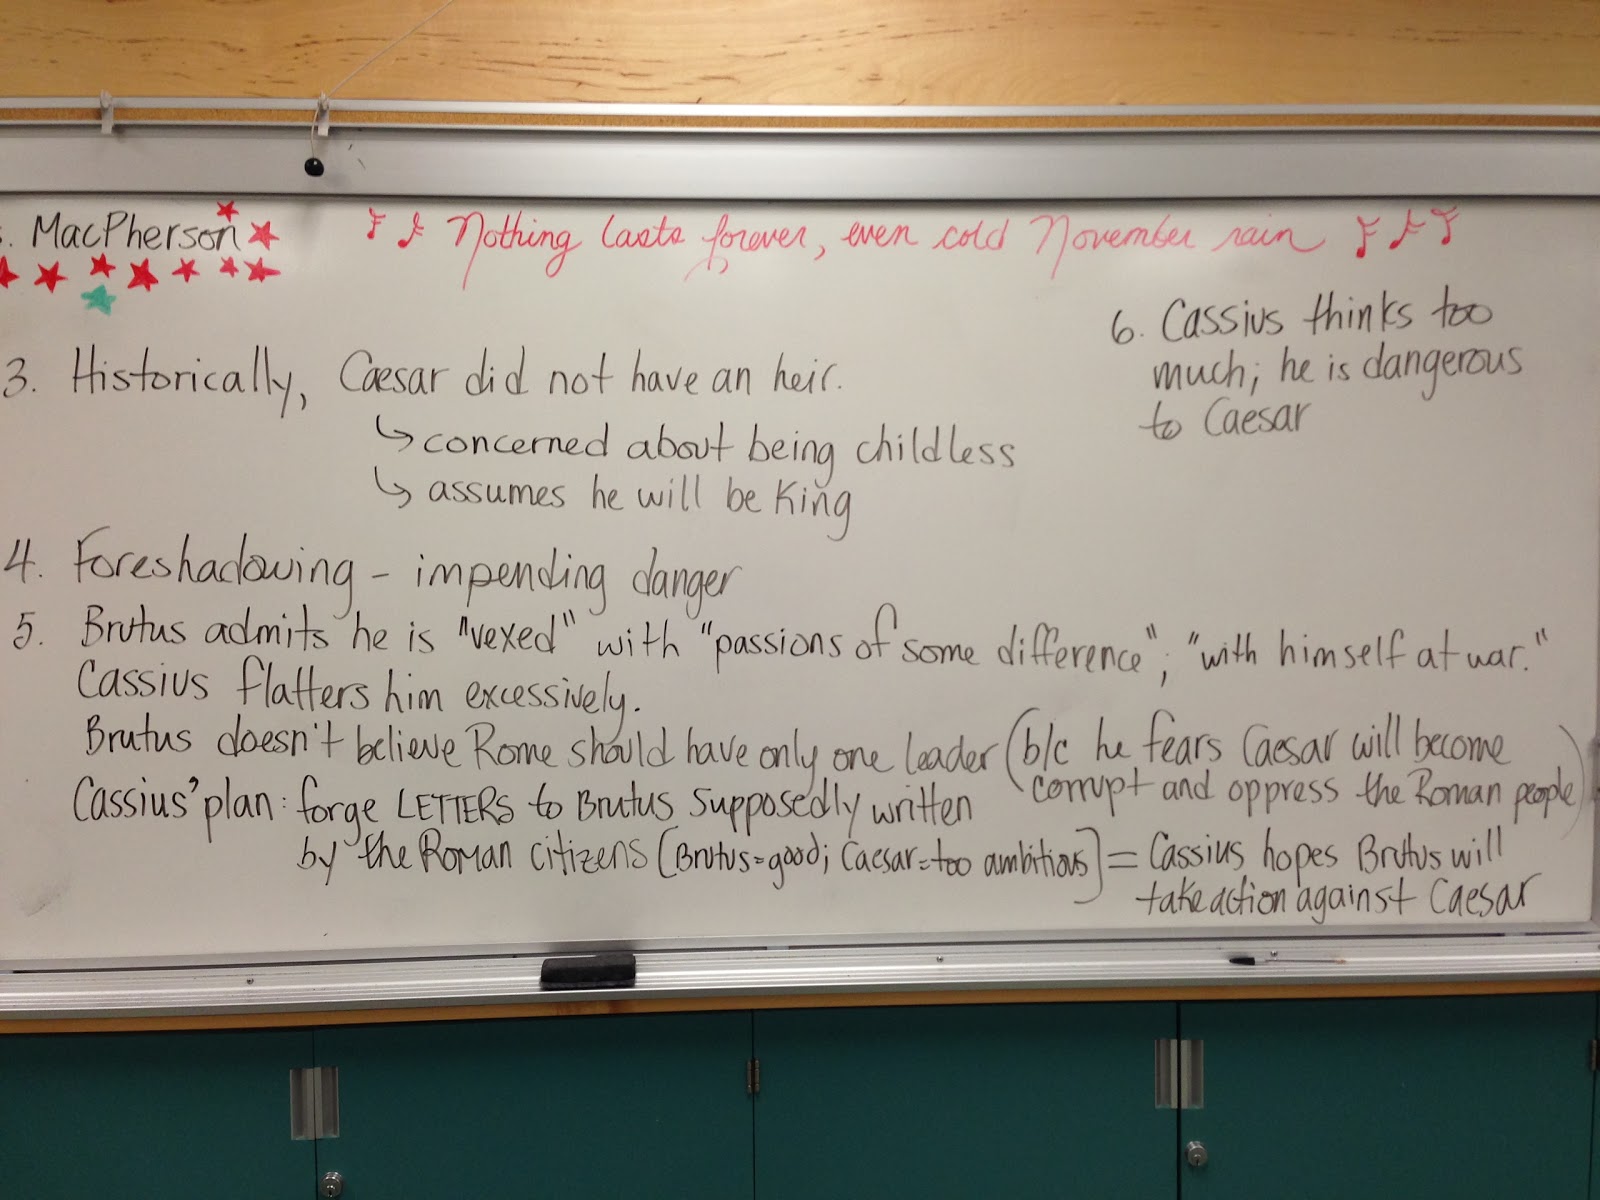 s. MacPherson
Nothing lasts forever, even cold November rain
3. Historically, Caesar did not have an heir.
↳ concerned about being childless
↳ assumes he will be King
4. Foreshadowing - impending danger
5. Brutus admits he is "vexed" with "passions of some difference"; "with himself at war."
Cassius flatters him excessively.
Brutus doesn't believe Rome should have only one leader (b/c he fears Caesar will become
corrupt and oppress the Roman people)
Cassius' plan: forge LETTERS to Brutus supposedly written
by the Roman citizens [Brutus=good; Caesar=too ambitious] = Cassius hopes Brutus will
take action against Caesar
6. Cassius thinks too
much; he is dangerous
to Caesar